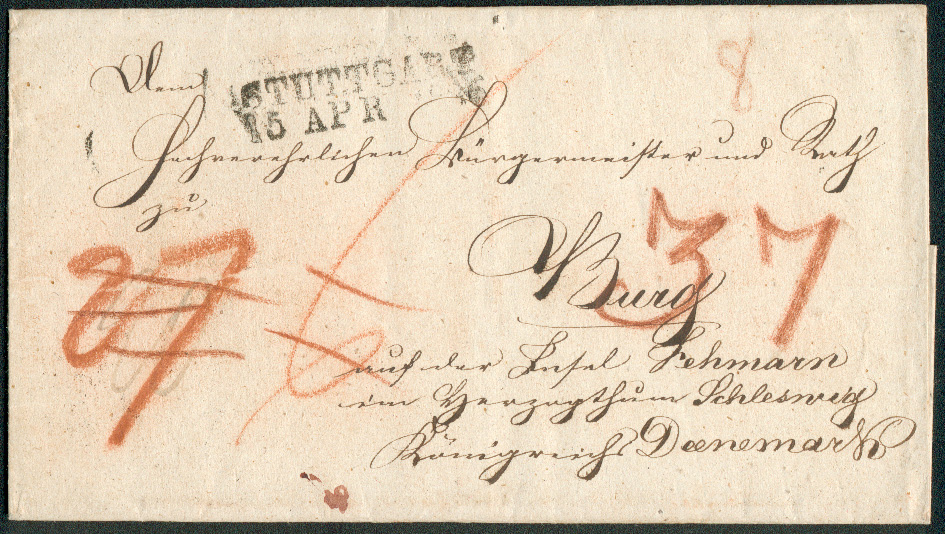 8
STUTTGART
15 APR
Dem
Hochverehrlichen Bürgermeister und Rath
zu
Burg
37
auf der Insel Fehmarn
im Herzogthum Schleswig
Königreichs Daenemark